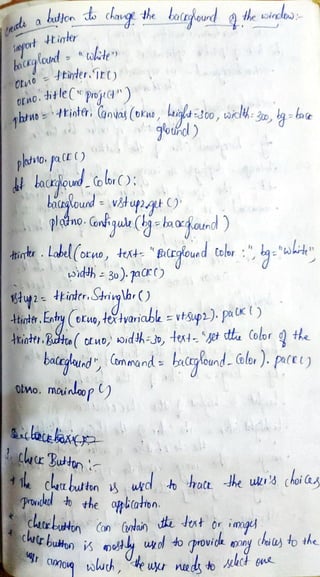 Create a button to change the background of the window:-
import tkinter
background = "white"
okno = tkinter.Tk()
okno.title("project")
platno = tkinter.Canvas(okno, height=300, width=300, bg=back
ground)
platno.pack()
def background_Color():
background = vstup2.get()
platno.Configure(bg=background)
tkinter.Label(okno, text= "Background Color :", bg="white",
width=30).pack()
vstup2 = tkinter.StringVar()
tkinter.Entry(okno, textvariable = vtsup2).pack()
tkinter.Button(okno, width=30, text="set the Color of the
background", Command = background_Color).pack()
okno.mainloop()
Check Button :-
* The checkbutton is used to track the user's choices
provided to the application.
* checkbutton Can Contain the text or images
* checkbutton is mostly used to provide many choices to the
user among which, the user needs to select one